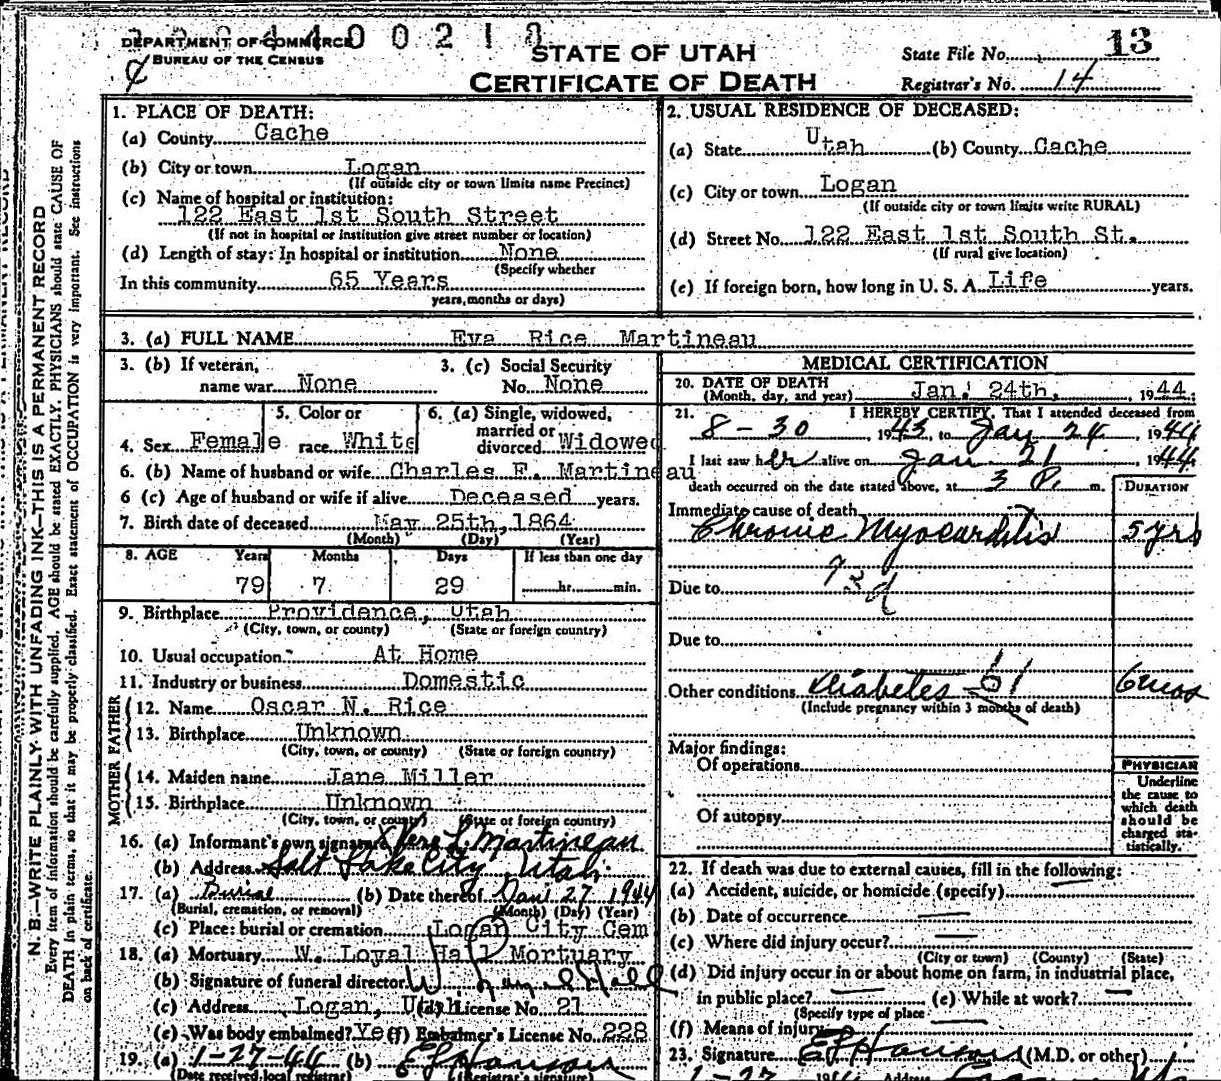 DEPARTMENT OF COMMERCE
BUREAU OF THE CENSUS
STATE OF UTAH
CERTIFICATE OF DEATH
State File No. 13
Registrar's No. 14
N. B.—WRITE PLAINLY WITH UNFADING INK—THIS IS A PERMANENT RECORD
Every item of information should be carefully supplied. AGE should be stated EXACTLY. PHYSICIANS should state CAUSE OF
DEATH in plain terms, so that it may be properly classified. Exact statement of OCCUPATION is very important. See instructions
on back of certificate.
1. PLACE OF DEATH:
(a) County Cache
(b) City or town Logan
(If outside city or town limits name Precinct)
(c) Name of hospital or institution:
122 East 1st South Street
(If not in hospital or institution give street number or location)
(d) Length of stay: In hospital or institution None
(Specify whether
In this community 65 Years
years, months or days)
2. USUAL RESIDENCE OF DECEASED:
(a) State Utah (b) County Cache
(c) City or town Logan
(If outside city or town limits write RURAL)
(d) Street No. 122 East 1st South St.
(If rural give location)
(e) If foreign born, how long in U. S. A. Life years.
3. (a) FULL NAME Eva Rice Martineau
3. (b) If veteran, 3. (c) Social Security
name war None No. None
5. Color or 6. (a) Single, widowed,
married or
4. Sex Female race White divorced Widowed
6. (b) Name of husband or wife Charles F. Martineau
6 (c) Age of husband or wife if alive Deceased years.
7. Birth date of deceased May 25th, 1864
(Month) (Day) (Year)
8. AGE Years Months Days If less than one day
79 7 29 hr. min.
9. Birthplace Providence, Utah
(City, town, or county) (State or foreign country)
10. Usual occupation At Home
11. Industry or business Domestic
FATHER
12. Name Oscar N. Rice
13. Birthplace Unknown
(City, town, or county) (State or foreign country)
MOTHER
14. Maiden name Jane Miller
15. Birthplace Unknown
(City, town, or county) (State or foreign country)
16. (a) Informant's own signature Vere L. Martineau
(b) Address Salt Lake City Utah.
17. (a) Burial (b) Date thereof Jan 27 1944
(Burial, cremation, or removal) (Month) (Day) (Year)
(c) Place: burial or cremation Logan City Cem
18. (a) Mortuary W. Loyal Hall Mortuary
(b) Signature of funeral director W. Loyal Hall
(c) Address Logan, Utah (d) License No. 21
(e) Was body embalmed? Yes (f) Embalmer's License No. 228
19. (a) 1-27-44 (b) E J Hanson
(Date received local registrar) (Registrar's signature)
MEDICAL CERTIFICATION
20. DATE OF DEATH
(Month, day, and year) Jan. 24th, 1944
21. I HEREBY CERTIFY, That I attended deceased from
8-30, 1943, to Jan 24, 1944
I last saw her alive on Jan 21 1944
death occurred on the date stated above, at 3 P. m. DURATION
Immediate cause of death
Chronic Myocarditis 5 yrs
Due to
Due to
Other conditions Diabetes 61 6 mos
(Include pregnancy within 3 months of death)
Major findings:
Of operations
Of autopsy
PHYSICIAN
Underline
the cause to
which death
should be
charged sta-
tistically.
22. If death was due to external causes, fill in the following:
(a) Accident, suicide, or homicide (specify)
(b) Date of occurrence
(c) Where did injury occur?
(City or town) (County) (State)
(d) Did injury occur in or about home on farm, in industrial place,
in public place? (e) While at work?
(Specify type of place
(f) Means of injury
23. Signature E J Hanson (M.D. or other)
1-27 Address